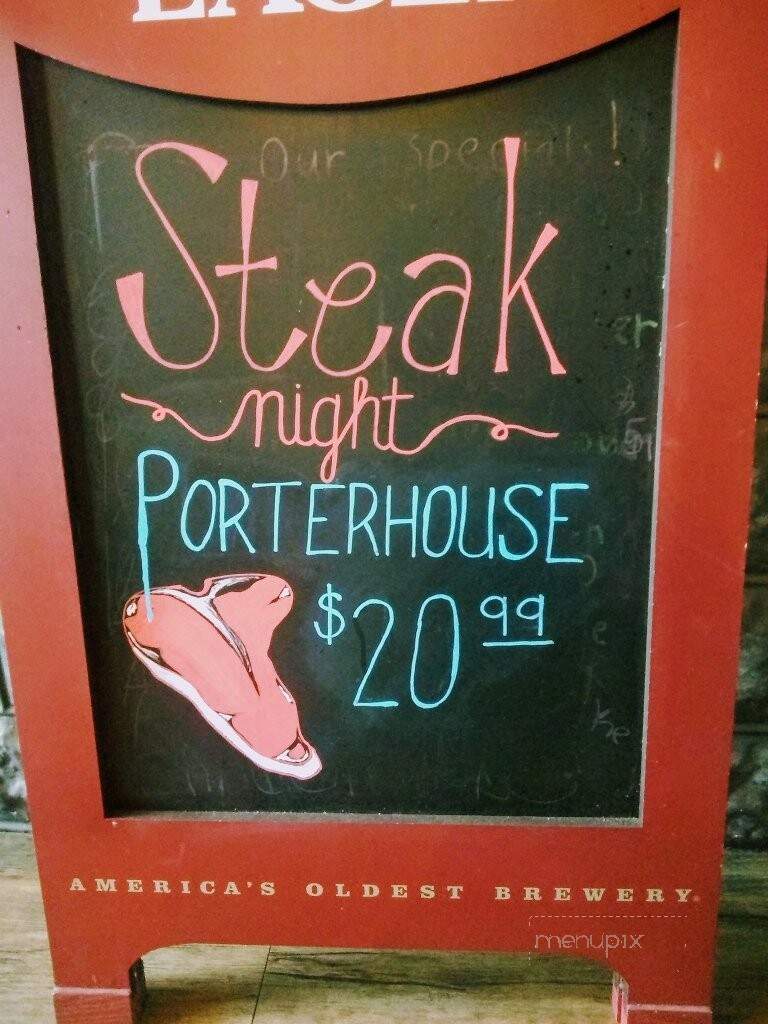 Our Specials!
Steak
night
PORTERHOUSE
$20 99
AMERICA'S OLDEST BREWERY
menupix